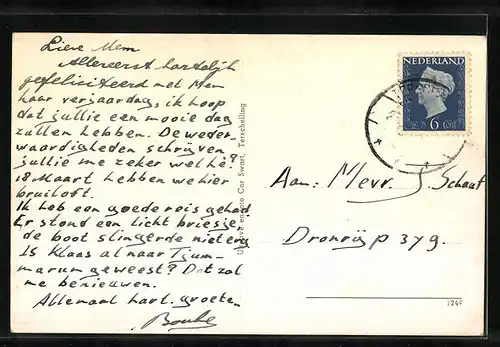 Lieve Mem
Allereerst hartelijk
gefeliciteerd met Mem
haar verjaardag, ik hoop
dat jullie een mooie dag
zullen hebben. De weder-
waardigheden schrijven
jullie me zeker wel hè?
18 Maart hebben we hier
bruiloft.
Ik heb een goede reis gehad
Er stond een licht briesje,
de boot slingerde niet erg
Is Klaas al naar Tjum-
marum geweest? Dat zal
me benieuwen.
Allemaal hart. groete-
Bouke
Uitgave en foto Cor Swart, Terschelling
NEDERLAND
6 cent
Aan: Mevr. J. Schaaf
Dronrijp 379.
1249